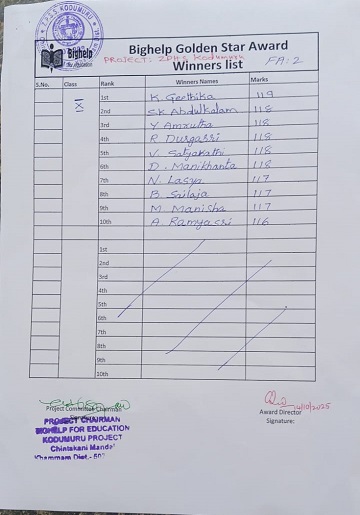 Z.P.S.S. KODUMURU
Bighelp Golden Star Award
PROJECT: ZPHS Kodumuru
Bighelp
for education
Winners list
FA: 2
S.No. Class Rank Winners Names Marks
IXI 1st K. Geethika 119
2nd SK Abdulkalam 118
3rd Y. Amrutha 118
4th R. Durgasri 118
5th V. Satyakathi 118
6th D. Manikhanta 118
7th N. Lasya 117
8th B. Sailaja 117
9th M. Manisha 117
10th A. Ramyasri 116
1st
2nd
3rd
4th
5th
6th
7th
8th
9th
10th
Project Committee Chairman
PROJECT CHAIRMAN
BIGHELP FOR EDUCATION
KODUMURU PROJECT
Chintakani Mandal
Khammam Dist.- 507
Award Director
Signature:
/10/2025